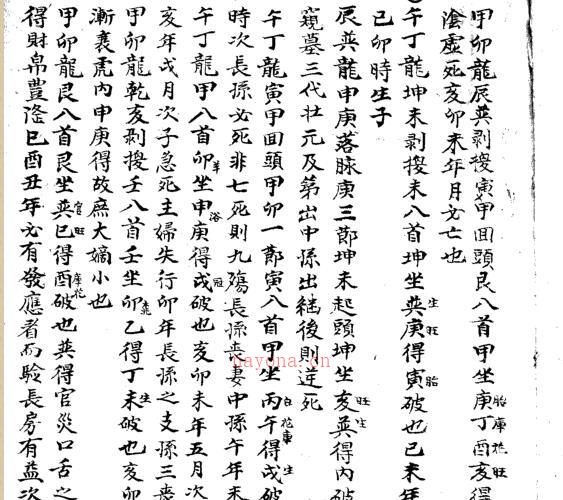 甲卯龍辰巽剥換寅甲回頭艮八首甲坐庚丁酉亥得
胎庫花旺
陰虛死亥卯未年月必亡也
午丁龍坤未剥換未八首坤坐巽庚得寅破也已未年
生旺胎
已卯時生子
辰巽龍申庚落脉庚三節坤未起頭坤坐亥巽得内破
旺生
窺墓三代壮元及第出中孫出継後則迂死
午丁龍寅甲回頭甲卯一節寅八首甲坐丙午得戌破
時次長孫必死非七死則九殤長孫喪妻中孫午年未
午丁龍甲八首卯坐申庚得戌破也亥卯未年五月次
浴冠
亥年戌月次子急死主婦失行卯年長孫之支孫三喪
甲卯龍乾亥剥換壬八首壬坐卯乙得丁未破也亥卯
漸襄虎内申庚得故庶大嫡小也
甲卯龍艮八首艮坐巽巳得酉破也巽得官災口舌之
官旺庫花
得財帛豊隆巳酉丑年必有發應者而驗長房有益次
nayona.cn